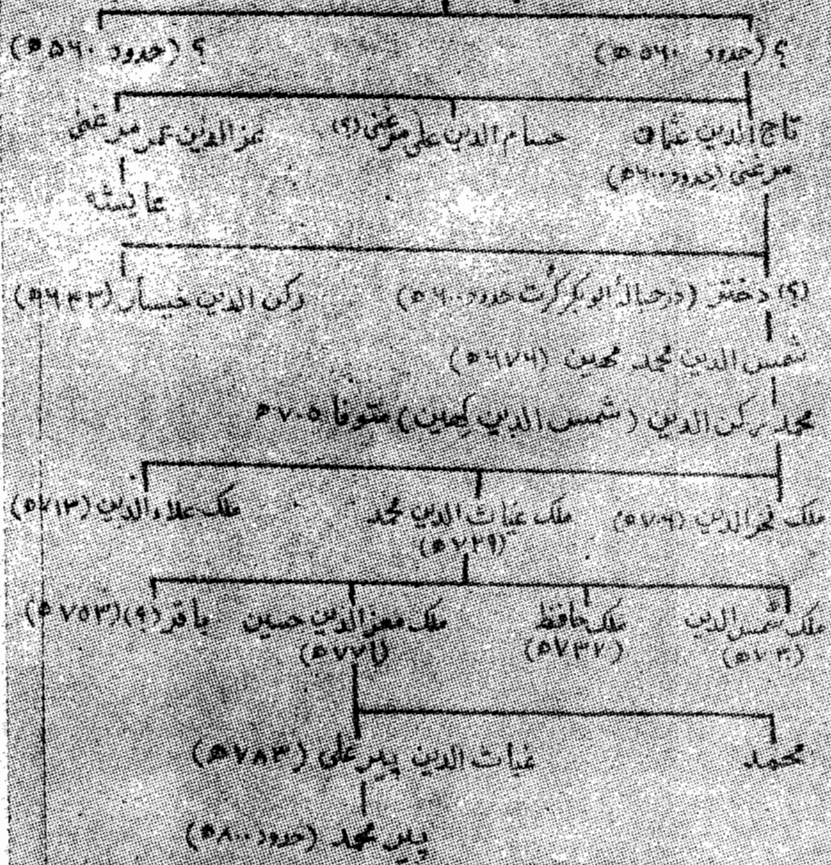 ؟ (حدود ۵۶۰ ه) ؟ (حدود ۵۶۰ ه)
تاج الدین عثمان حسام الدین علی مرغنی (؟) عزالدین عمر مرغنی
مرغنی (حدود ۶۰۰ ه)
عایشه
(؟) دختر (در حبالهٔ ابوبکر کرت حدود ۶۰۰ ه) رکن الدین خیسار (۶۴۳ ه)
شمس الدین محمد مهین (۶۷۶ ه)
محمد رکن الدین (شمس الدین کهین) متوفا ۷۰۵ ه
ملک فخرالدین (۷۰۶ ه) ملک غیاث الدین محمد ملک علاءالدین (۷۱۳ ه)
(۷۲۹ ه)
ملک شمس الدین ملک حافظ ملک معزالدین حسین باقر (؟) (۷۵۳ ه)
(۷۳۰ ه) (۷۳۲ ه) (۷۷۱ ه)
محمد غیاث الدین پیرعلی (۷۸۳ ه)
پیر محمد (حدود ۸۰۰ ه)